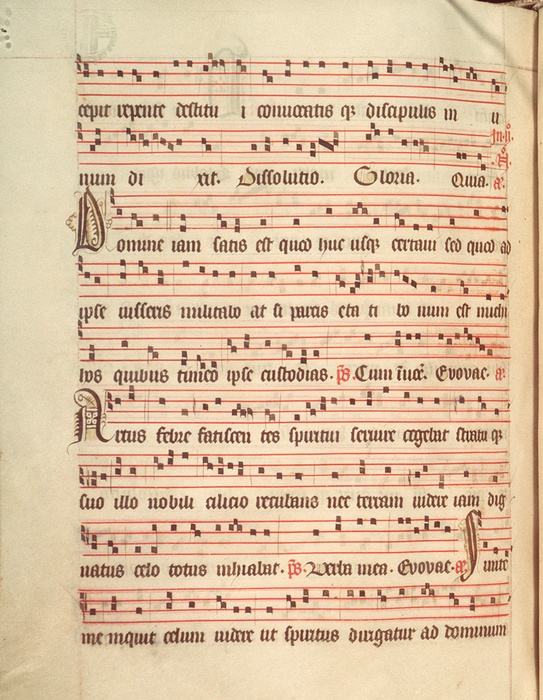 cepit repente destitu i conuocatis q; discipulis in u
num di xit. Dissolutio. Gloria. Quia. a.
Domine iam satis est quod huc usq; certaui sed quod ad
ipse iusseris militabo at si parcis eta ti bo num est michi
hos quibus timeo ipse custodias. ps. Cum īuoc. Evovae. a.
Artus febre fatiscen tes spiritui seruire cogebat stratu q;
suo illo nobili cilicio recubans nec terram uidere iam dig
natus celo totus inhiabat. ps. Verba mea. Evovae. a. Sinite
me inquit celum uidere ut spiritus dirigatur ad dominum